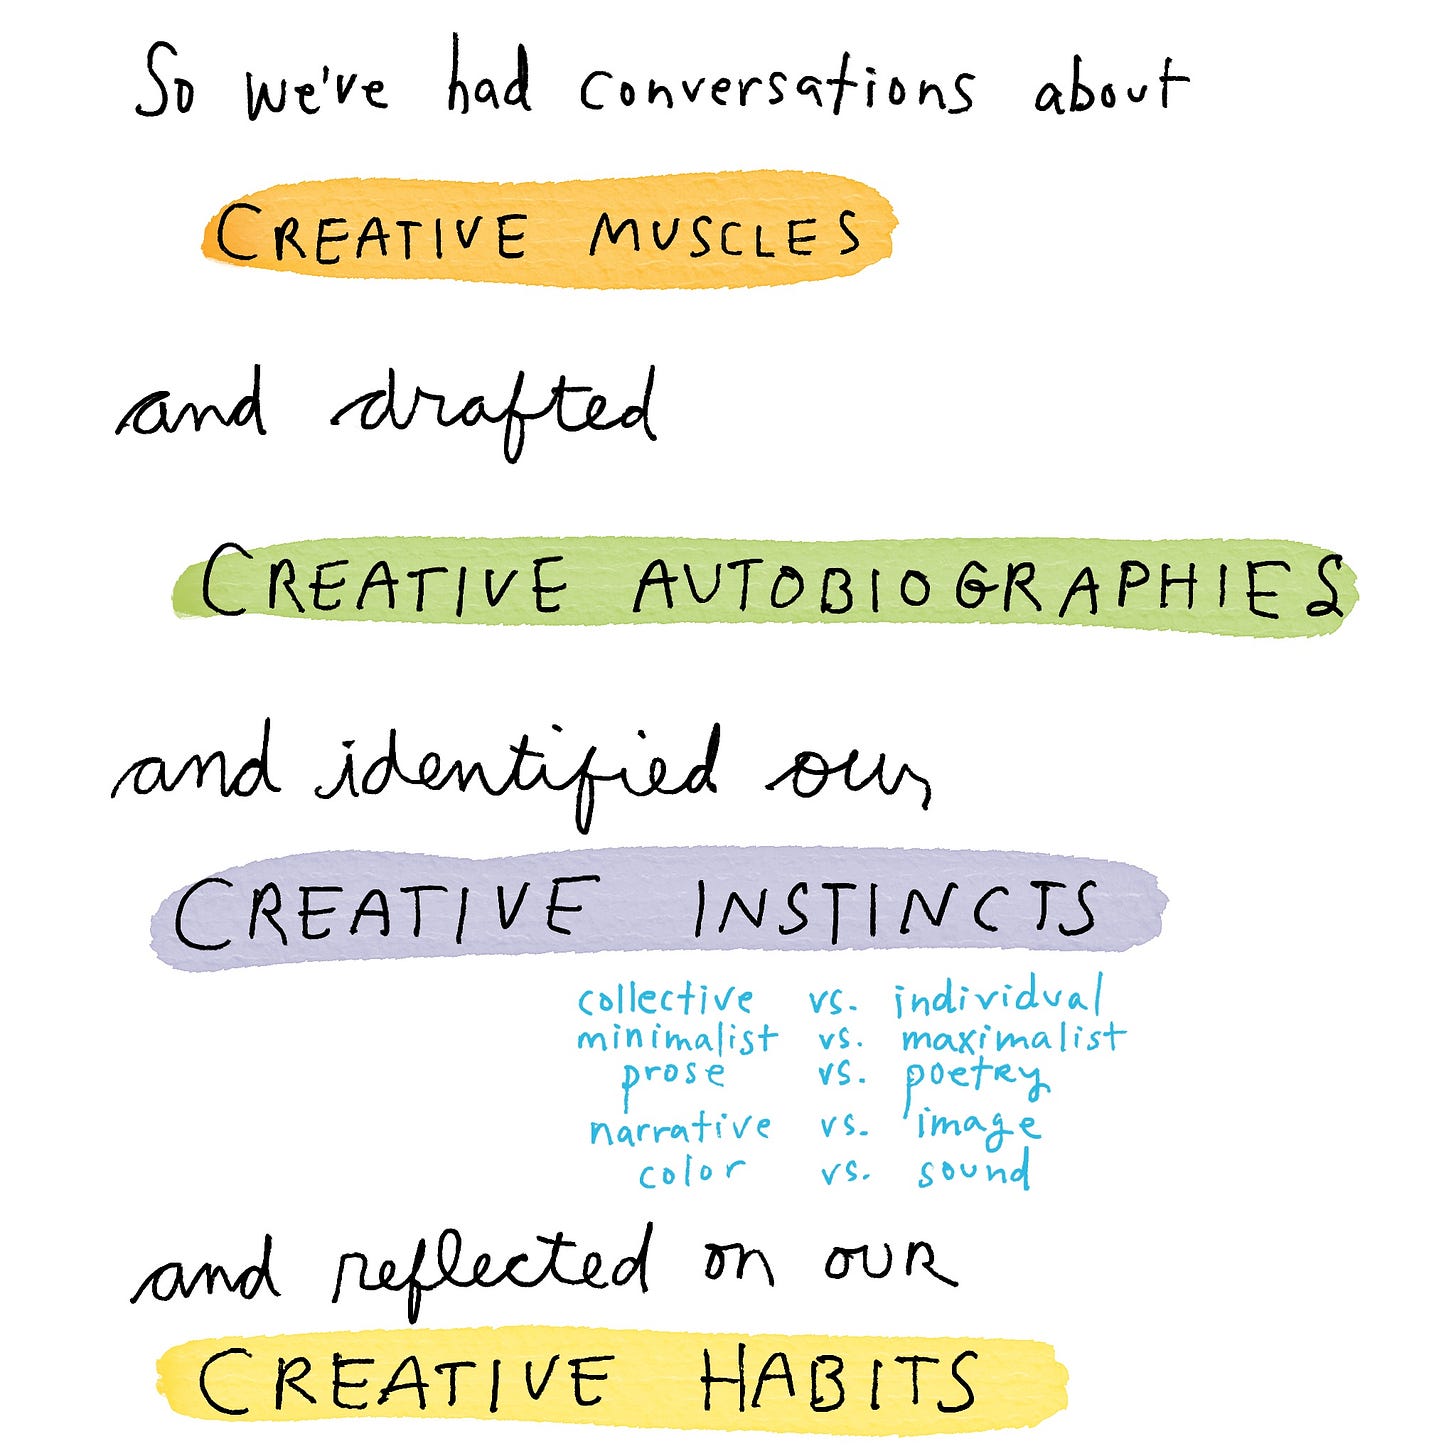 So we've had conversations about
CREATIVE MUSCLES
and drafted
CREATIVE AUTOBIOGRAPHIES
and identified our
CREATIVE INSTINCTS
collective vs. individual
minimalist vs. maximalist
prose vs. poetry
narrative vs. image
color vs. sound
and reflected on OUR
CREATIVE HABITS